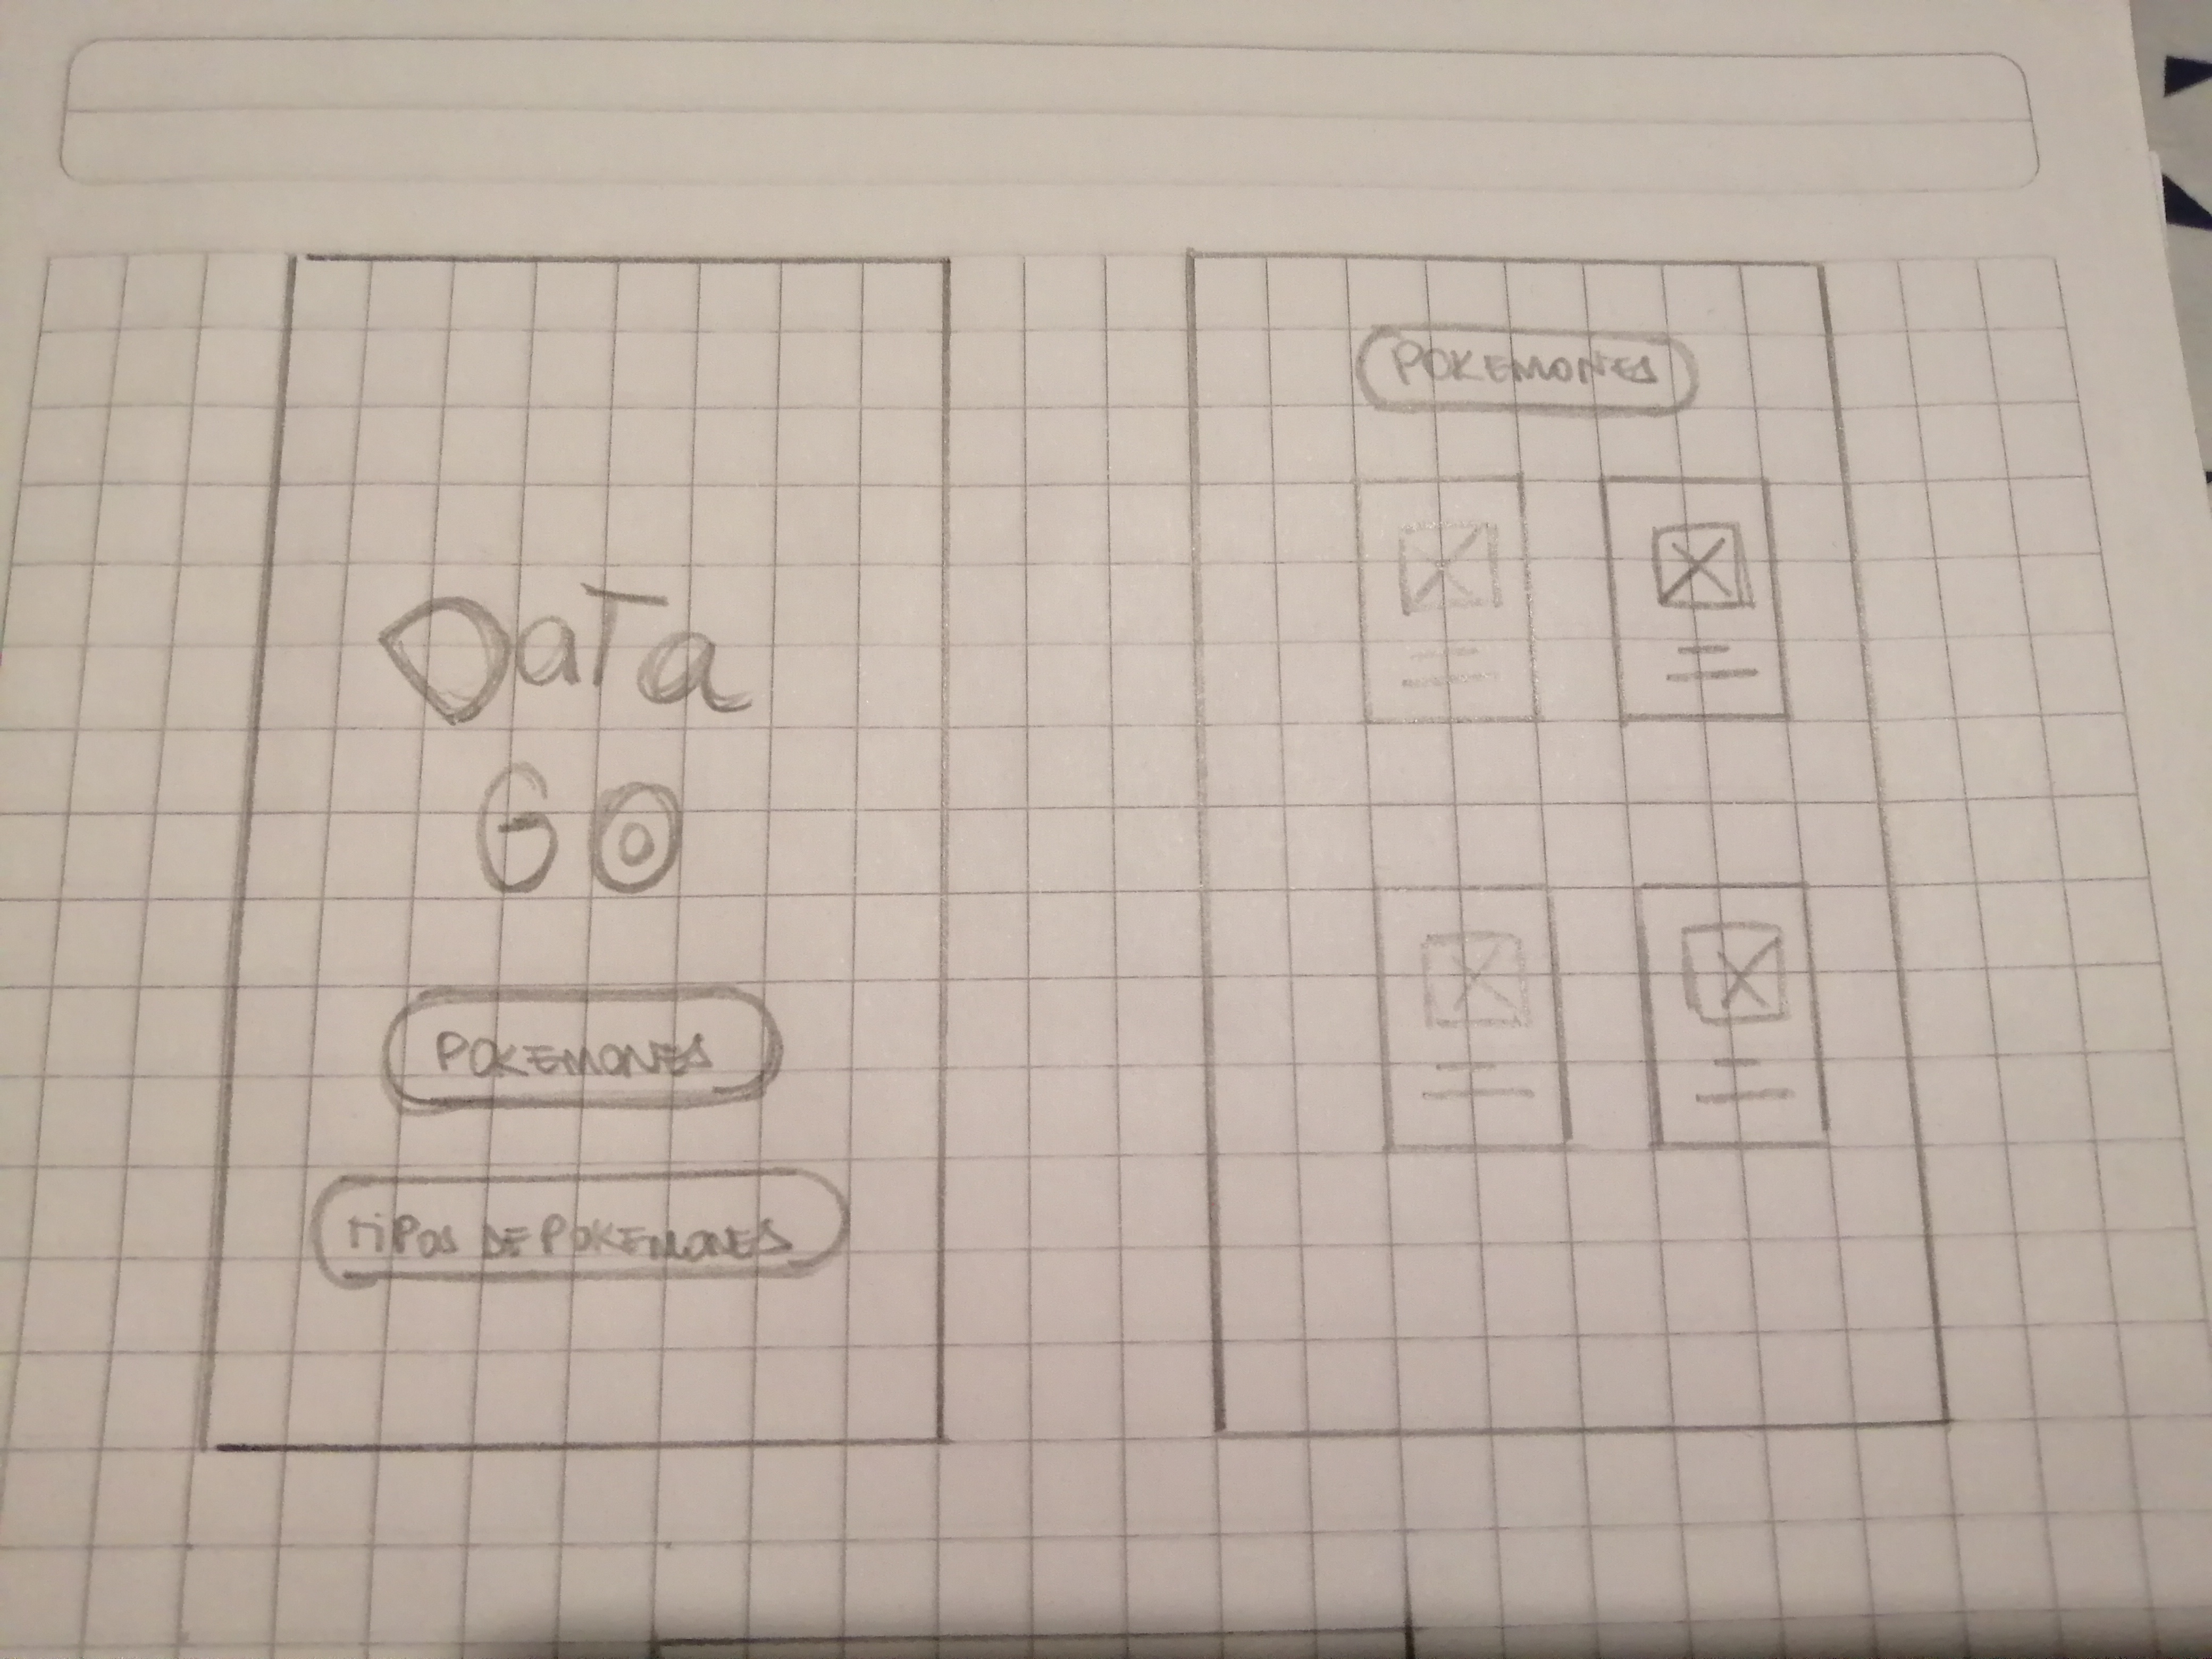 DaTa
GO
POKEMONES
TiPOS DE POKEMONES
POKEMONES